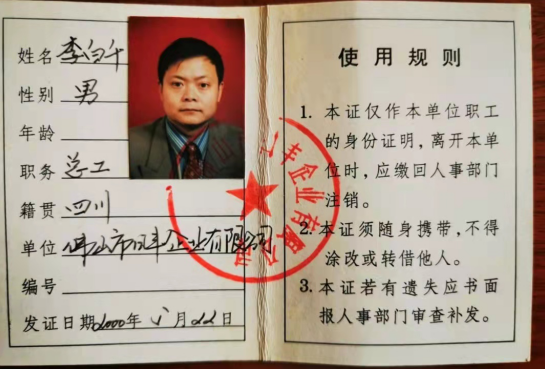 姓名 李白千
性别 男
年龄
职务 总工
籍贯 四川
单位 佛山市川丰企业有限公司
编号
发证日期2000年 月22日
使用规则
1. 本证仅作本单位职工
的身份证明，离开本单
位时，应缴回人事部门
注销。
2. 本证须随身携带，不得
涂改或转借他人。
3. 本证若有遗失应书面
报人事部门审查补发。
丰企业有限公司